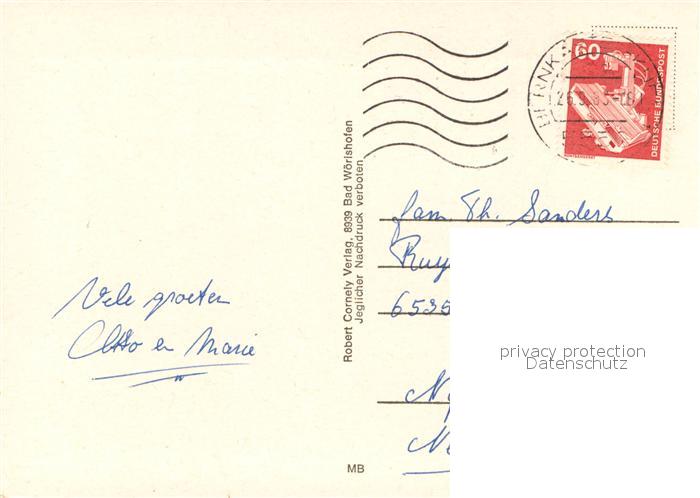 Vele groeten
Otto en Marie
Robert Cornely Verlag, 8939 Bad Wörishofen
Jeglicher Nachdruck verboten
MB
60
DEUTSCHE BUNDESPOST
fam. Th. Sanders
6535
privacy protection
Datenschutz